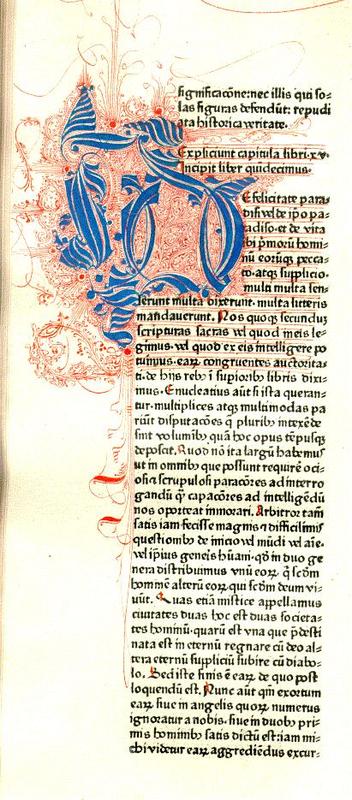 significacõne: nec illis qui so⸗
las figuras defendũt: repudi
ata historica veritate.
Expliciunt capitula libri .xv.
Incipit liber quindecimus.
DE felicitate para⸗
disi vel de ip̃o pa⸗
radiso. et de vita
ibi pͥmorũ homi⸗
nũ eorũꝙ pecca⸗
to. atqꝫ supplicio.
multi multa sen⸗
serunt multa dixerunt. multa litteris
mandauerunt. Nos quoqꝫ secundũ
scripturas sacras vel quod in eis le⸗
gimus. vel quod ex eis intelligere po
tuimus. eaꝝ congruentes auctorita⸗
ti. de hijs rebꝫ ĩ supioribꝫ libris dixi⸗
mus. Enucleatius aũt si ista queran⸗
tur. multiplices atqꝫ multimodas pa
riũt disputacões q̃ pluribꝫ intexẽde
sint volumĩbꝫ. quã hoc opus tẽpusqꝫ
deposcit. Quod nõ ita largũ habemꝰ
ut in omnibꝫ que possunt requirere oci⸗
osi et scrupulosi paracões ad interro
gandũ q̃ capacões ad intelligẽdũ
nos oporteat inmorari. Arbitror tamẽ
satis iam fecisse magnis et difficilimis
questionibꝫ de inicio vel mũdi vel aĩe.
vel ip̃ius generis hũani. qd̃ in duo ge
nera distribuimus. vnũ eoꝝ. q̃ scdm̃
hominẽ alterũ eoꝝ qui scdm̃ deum vi⸗
uũt. Quas etiã mistice appellamus
ciuitates duas hoc est duas societa⸗
tes hominũ. quarũ est vna que p̃desti
nata est in eternũ regnare cũ deo al⸗
tera eternũ suppliciũ subire cũ diabo⸗
lo. Sed iste finis ẽ eaꝝ de quo post
loquendũ est. Nunc aũt qm̃ exortum
eaꝝ siue in angelis quoꝝ numerus
ignoratur a nobis. siue in duobꝫ pri⸗
mis hominibꝫ satis dictũ est: iam mi⸗
chi videtur eaꝝ aggrediẽdus excur⸗